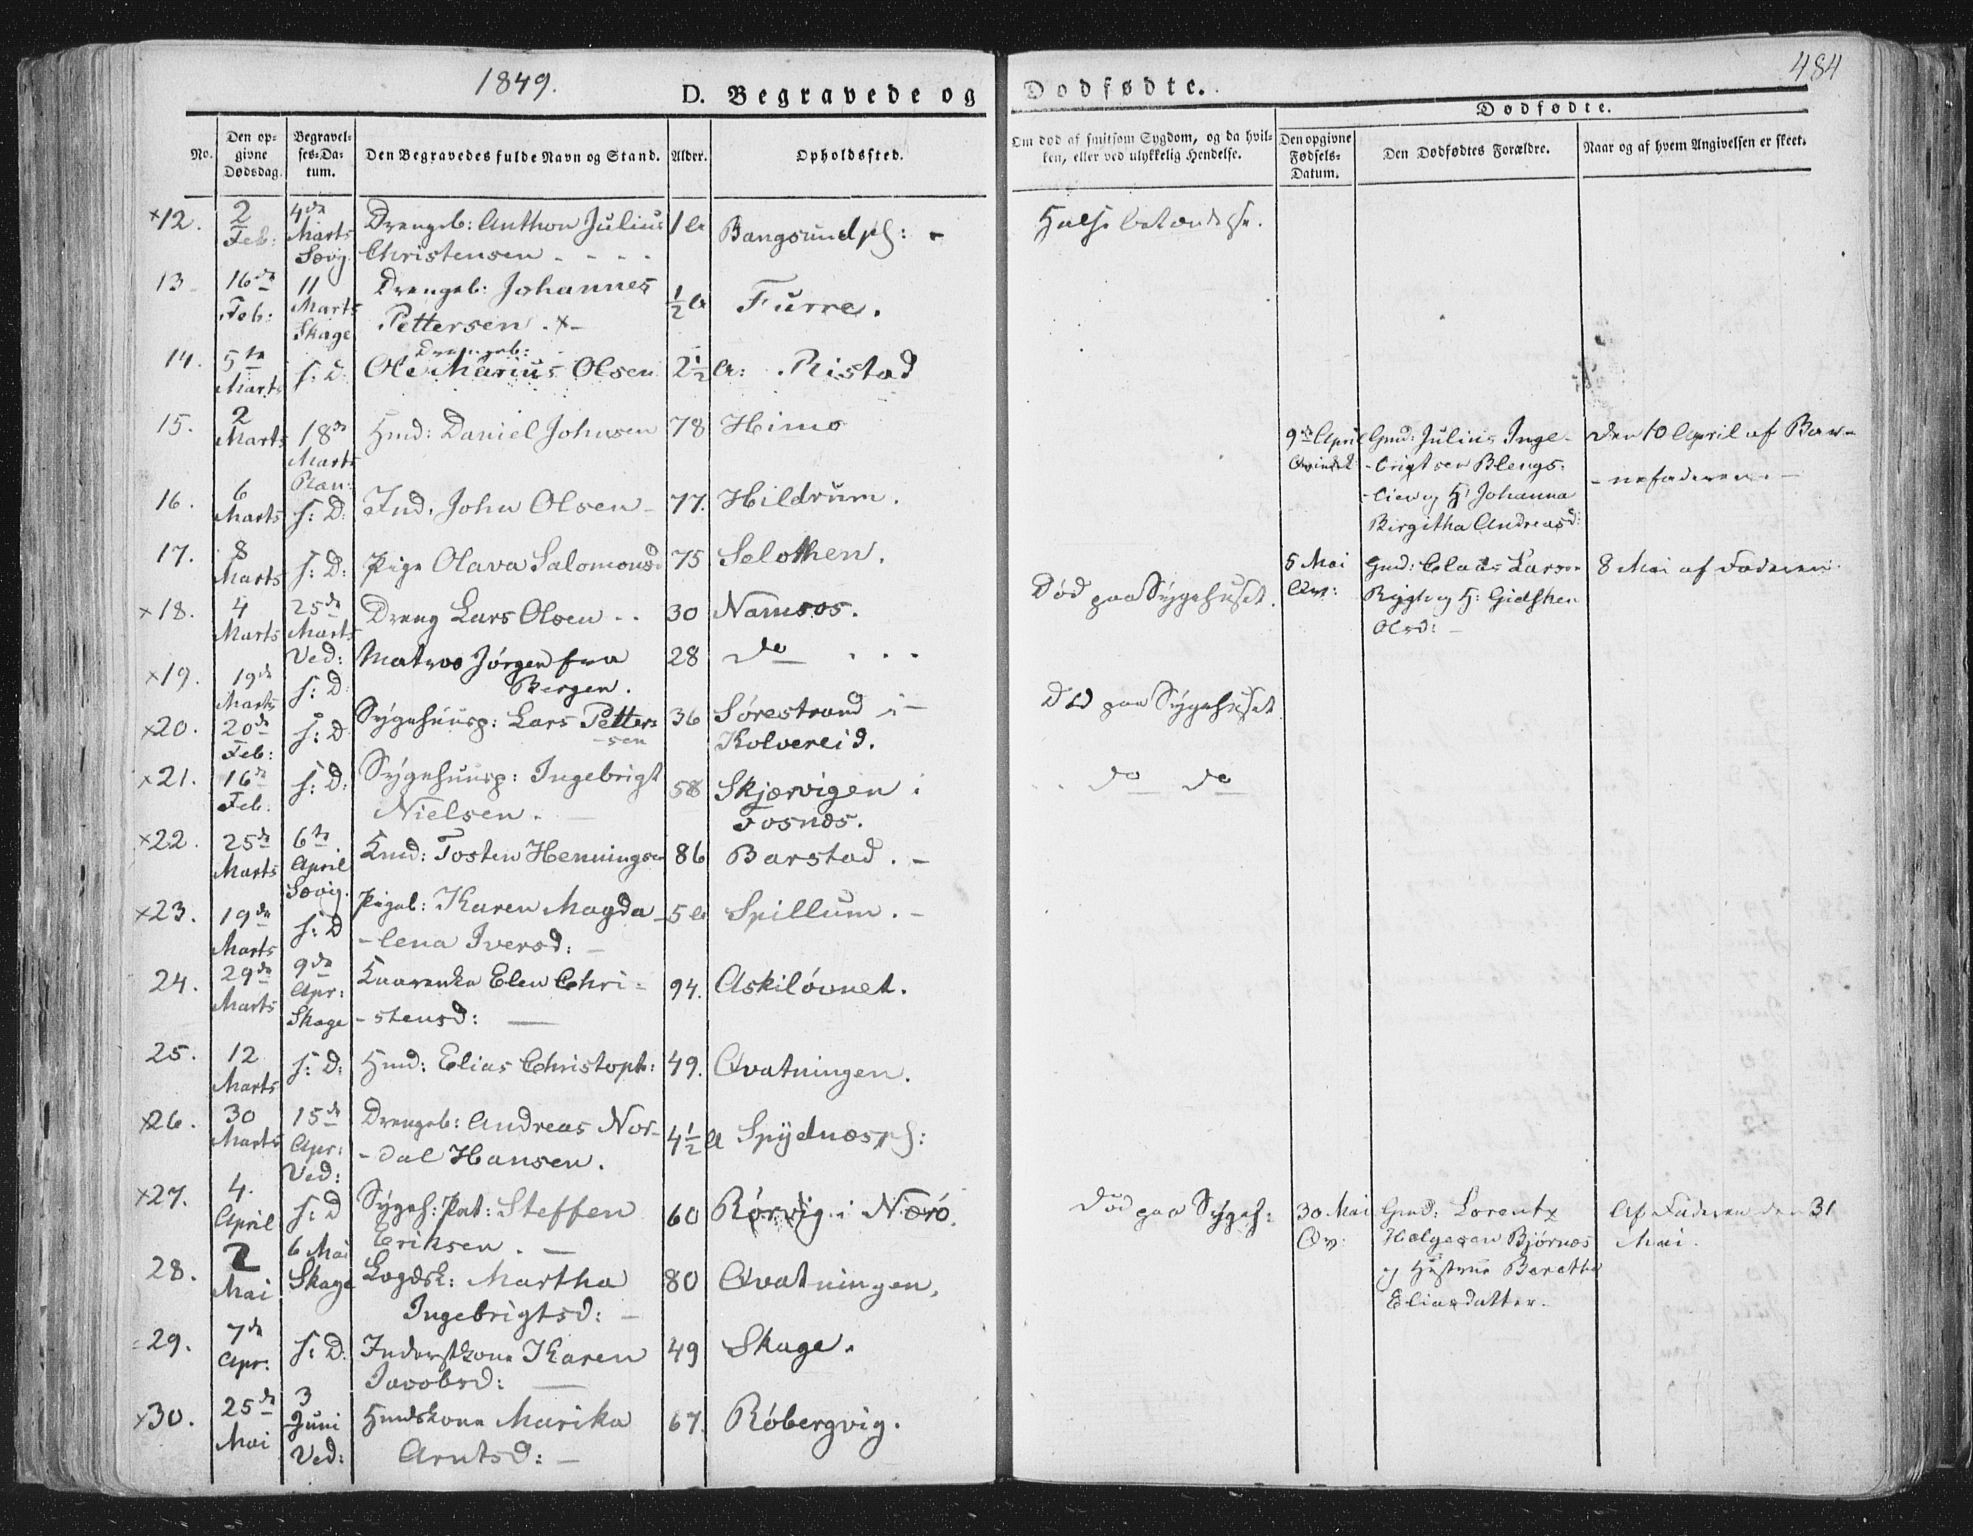 1849.
D. Begravede og
Dodfødte.
484
Dodfødte.
No.
Den op-
givne
Dødsdag.
Begravel-
ses-Da-
tum.
Den Begravedes fulde Navn og Stand.
Alder.
Opholdssted.
Om død af smitsom Sygdom, og da hvil-
ken, eller ved ulykkelig Hendelse.
Den opgivne
Fødsels-
Datum.
Den Dødfødtes Forældre.
Naar og af hvem Angivelsen er skeet.
×12. 2 Feb: 4de Marts Sævig Drengeb: Anthon Julius Christensen 1 a Bangsundpl: -
13 16de Feb: 11 Marts Skage Drengeb: Johannes Pettersen. ×- 1/2 a Furre.
14. 5te Marts s: D: Drengeb: Ole Marius Olsen 2 1/2 a: Ristad
15. 2 Marts 18de Marts Ran: Hmd: Daniel Johnsen 78 Himo
16. 6 Marts s: D: Ind. John Olsen - 77. Hildrum.
17. 8 Marts s: D: Pige Olava Salomonsd 75 Selothen.
×18. 4 Marts 25de Marts Ved: Dreng Lars Olsen .. 30 Namsos. Død paa Sygehuset.
×19. 19de Marts s: D: Matros Jørgen fra Bergen. 28 do
×20. 20de Feb: s: D Sygehuusp: Lars Petter-sen 36 Sørestrand i Kolvereid. Død paa Sygehuset
×21. 16de Feb: s: D: Sygehuusp: Ingebrigt Nielsen. 58 Skjærvigen i Fosnæs. do do
×22. 25de Marts 6te April Sævig. Kmd: Tosten Henningsen 86 Barstad. -
×23. 19de Marts s: D Pigeb: Karen Magda-lena Iversd: - 5 a Spillum. -
24. 29de Marts 9de Apr: Skage Elen Chri-stensd: 94. Askiløvnet.
25. 12 Marts s: D: Hmd: Elias Christoph: 49. Qvatningen.
×26. 30 Marts 15de Apr: Ved: Drengeb: Andreas Nor-dal Hansen. 4 1/2 a Spydnæspl:
×27. 4. April s: D Sygeh: Pat: Steffen Eriksen. - 60 Rørvig i Nærø. Død paa Sygeh:
28. 2 Mai 6 Mai Skage Lægdsk: Martha Ingebrigtsd: - 80 Qvatningen.
29. 7de Apr: s: D: Inderstkone Karen Jacobsd: 49 Skage.
×30. 25de Mai 3 Juni Ved: Hmdskone Marika Arntsd: - 67. Røbergvig.
9de April Gmd: Julius Inge- Den 10 April af Bar-
Qvindek -brigtsen Blengs- -nefaderen. -
-lien og H: Johanna
Birgitha Andreasd:
5 Mai Gmd: Claus Larsen 8 Mai af Faderen.
Qv: og H: Gidsken
Olsd: -
30 Mai Gmd: Lorentz Af Faderen den 31
Qv: Helgesen Bjørnæs Mai.
og Hustrue Berethe
Eliasdatter.